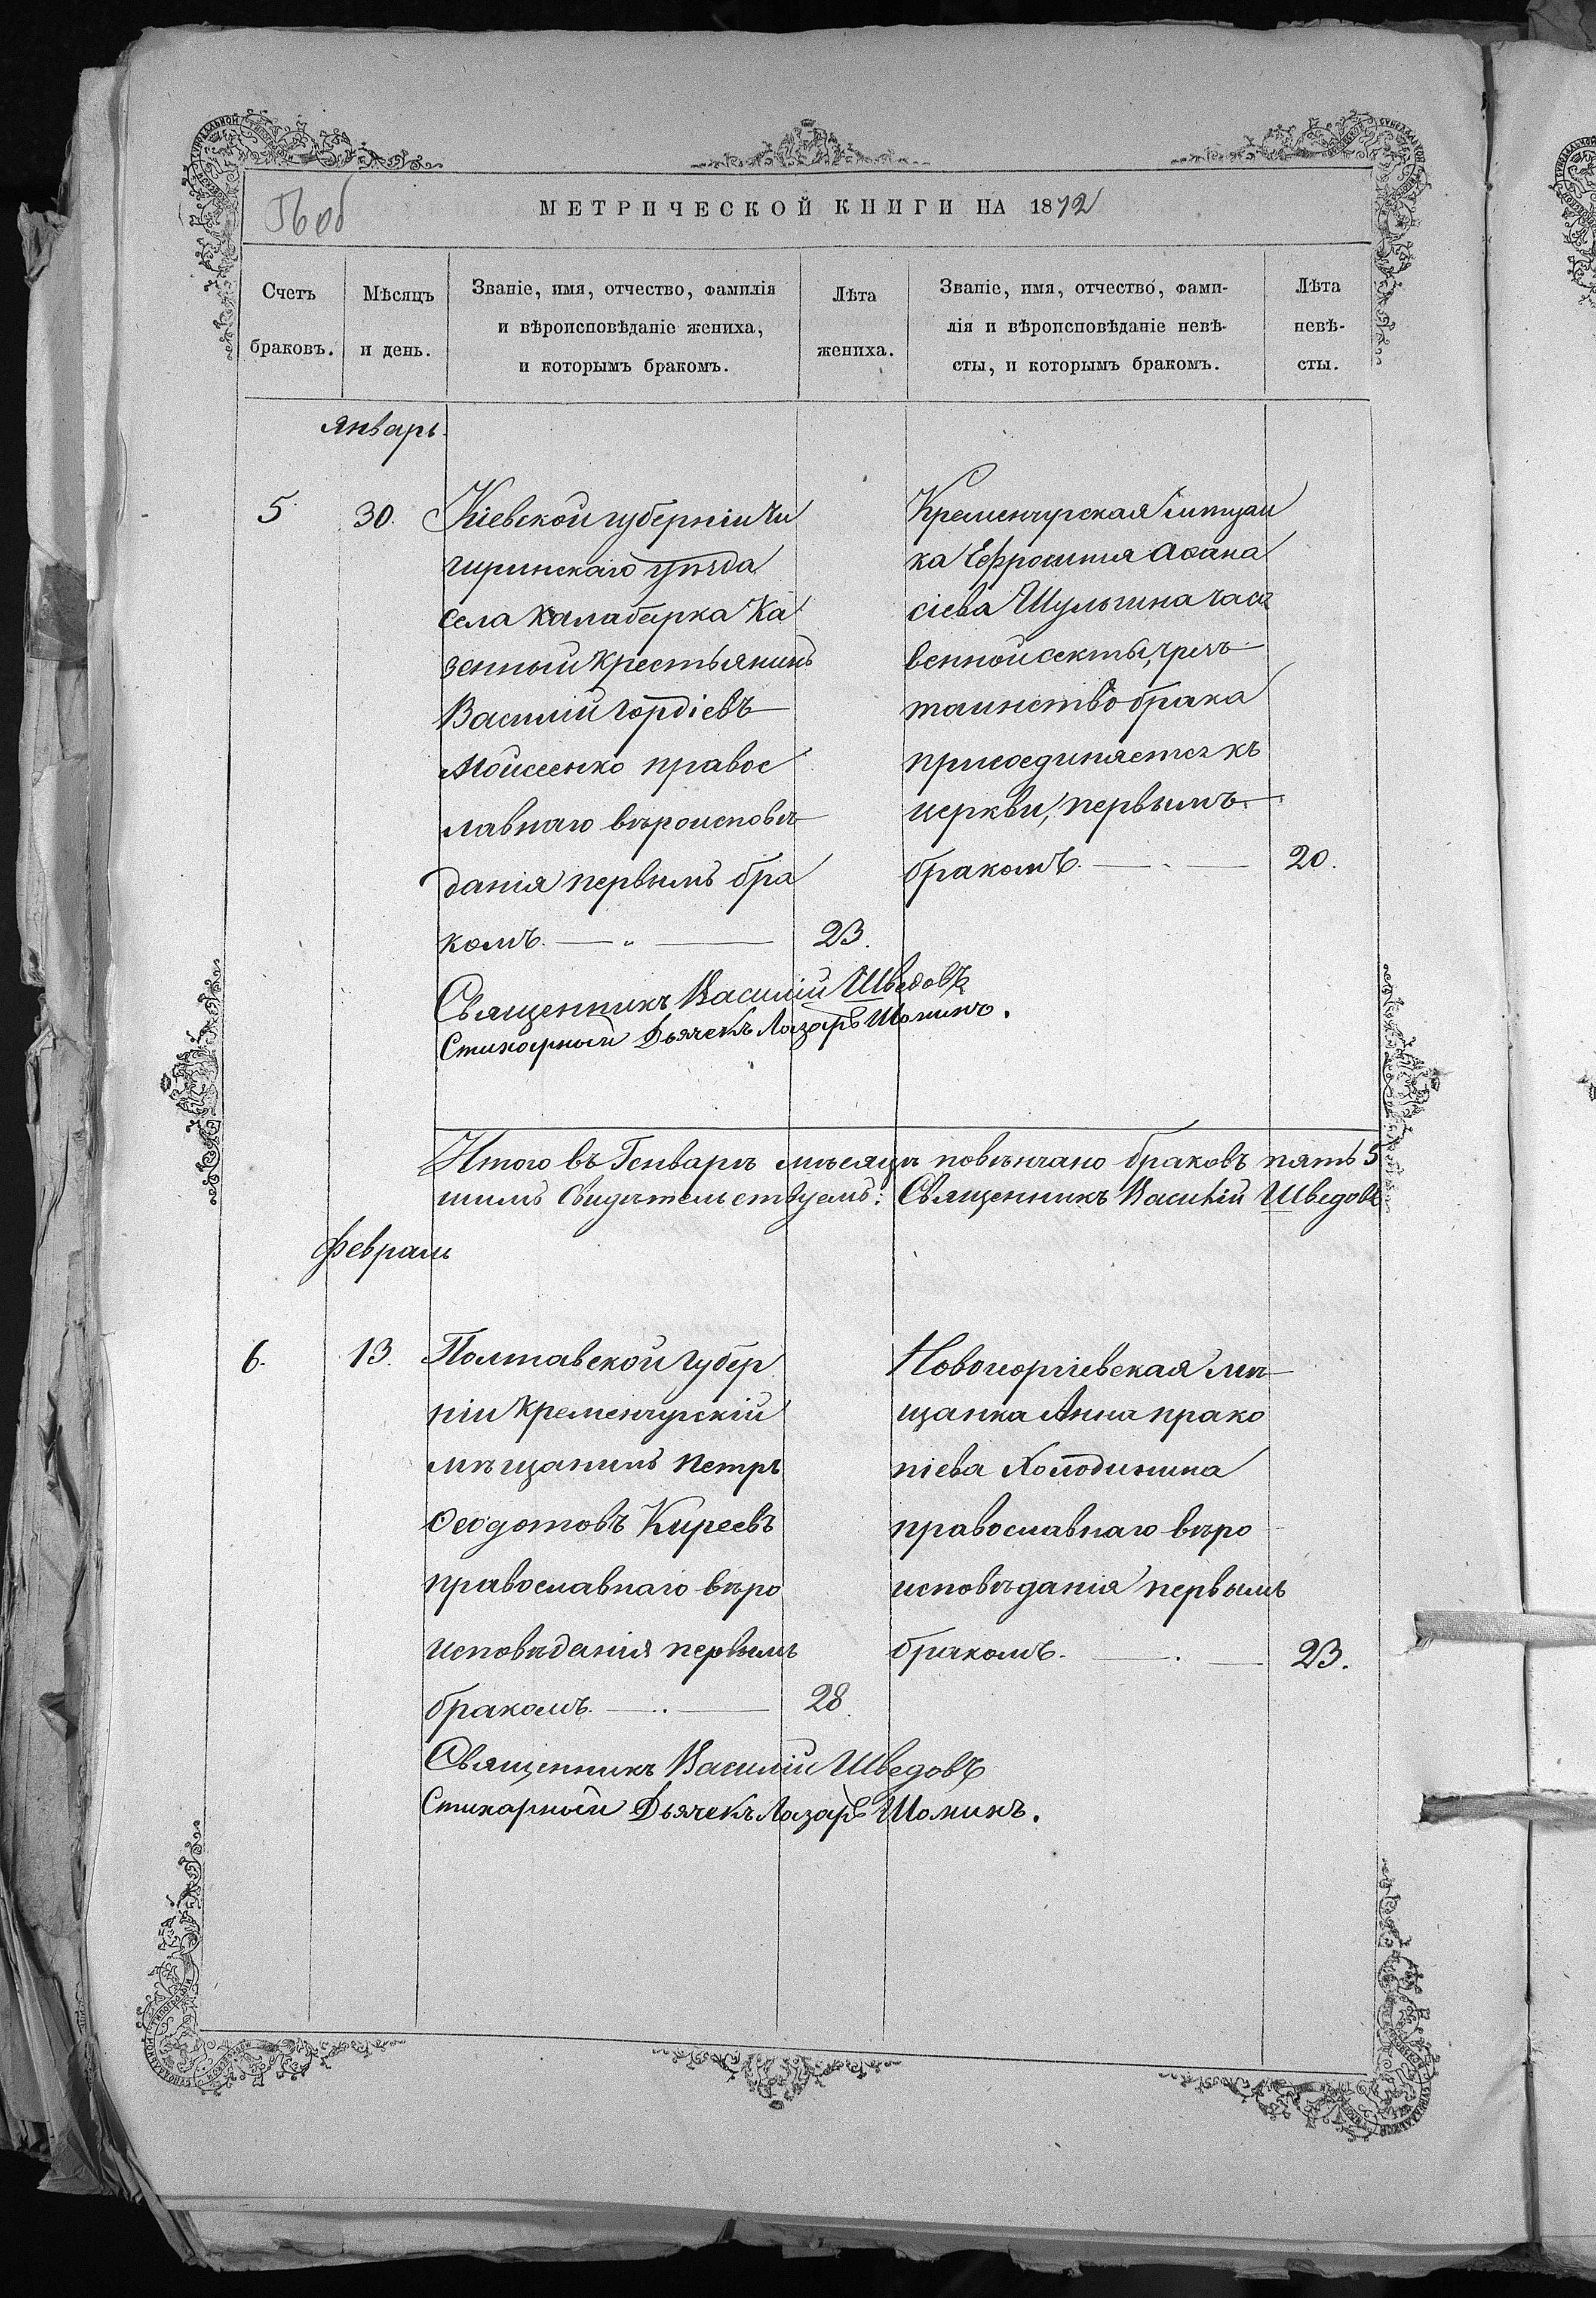 МЕТРИЧЕСКОЙ КНИГИ НА 1872
Счетъ браковъ.
Мѣсяцъ и день.
Званіе, имя, отчество, фамилія
и вѣроисповѣданіе жениха,
и которымъ бракомъ.
Лѣта жениха.
Званіе, имя, отчество, фами-
лія и вѣроисповѣданіе невѣ-
сты, и которымъ бракомъ.
Лѣта невѣ-
сты.
январь.
5
30.
Кіевской губерніи Чи
гиринскаго уѣзда
села Калаберка Ка
зенный крестьянинъ
Василій Гордіевъ
Мойсеенко правос
лавнаго вѣроисповѣ
данія первымъ бра
комъ. 23.
Кременчугская мѣщан
ка Ефросинія Аѳана
сіева Шульгина часъ
венной секты, чрезъ
таинство брака
присоединяется къ
церкви, первымъ
бракомъ. 20.
Священникъ Василій Шведовъ
Стихарный Дьячекъ Лазарь Шомикъ.
Итого въ Генварѣ мѣсяцѣ повѣнчано браковъ пять 5
симъ свидѣтельствуемъ: Священникъ Василій Шведовъ
Февраль
6.
13.
Полтавской губер
ніи Кременчугскій
мѣщанинъ Петръ
Ѳеодотовъ Киреевъ
православнаго вѣро
исповѣданія первымъ
бракомъ. 28.
Новогеоргіевская мѣ
щанка Анна прако
піева Холодинина
православнаго вѣро
исповѣданія первымъ
бракомъ. 23.
Священникъ Василій Шведовъ
Стихарный Дьячекъ Лазарь Шомикъ.